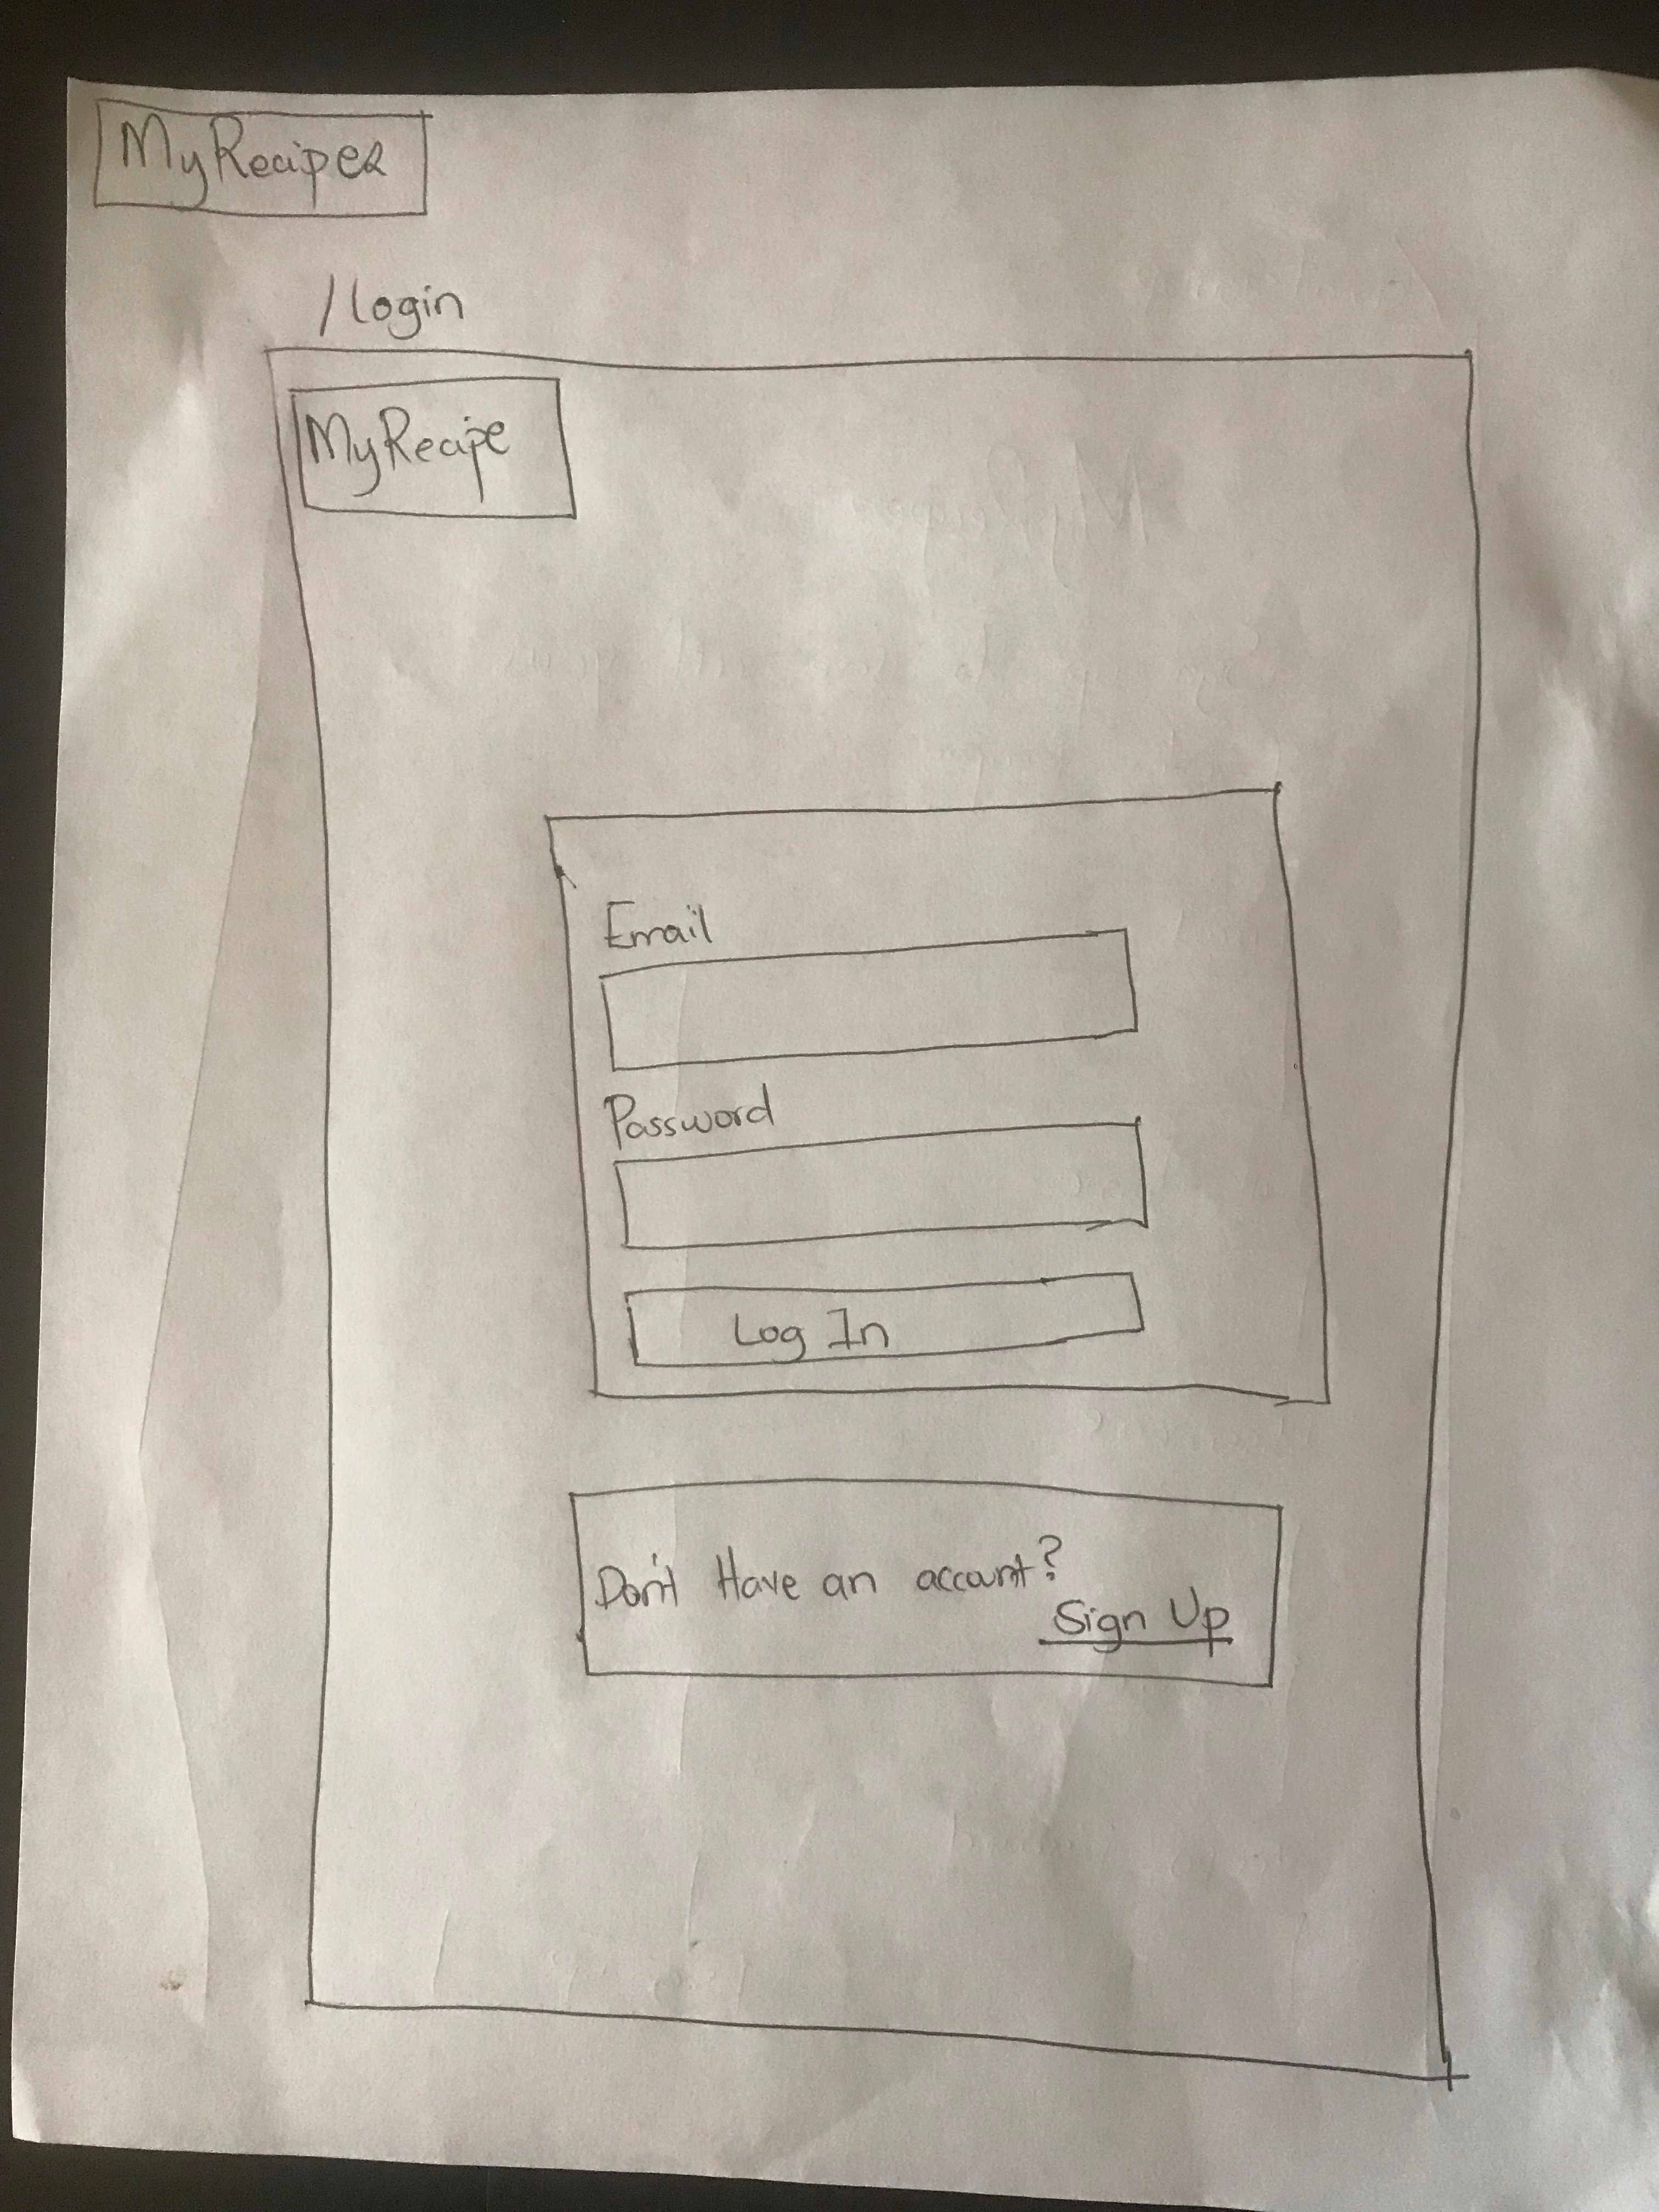 MyRecipes
/login
MyRecipe
Email
Password
Log In
Don't Have an account?
Sign Up